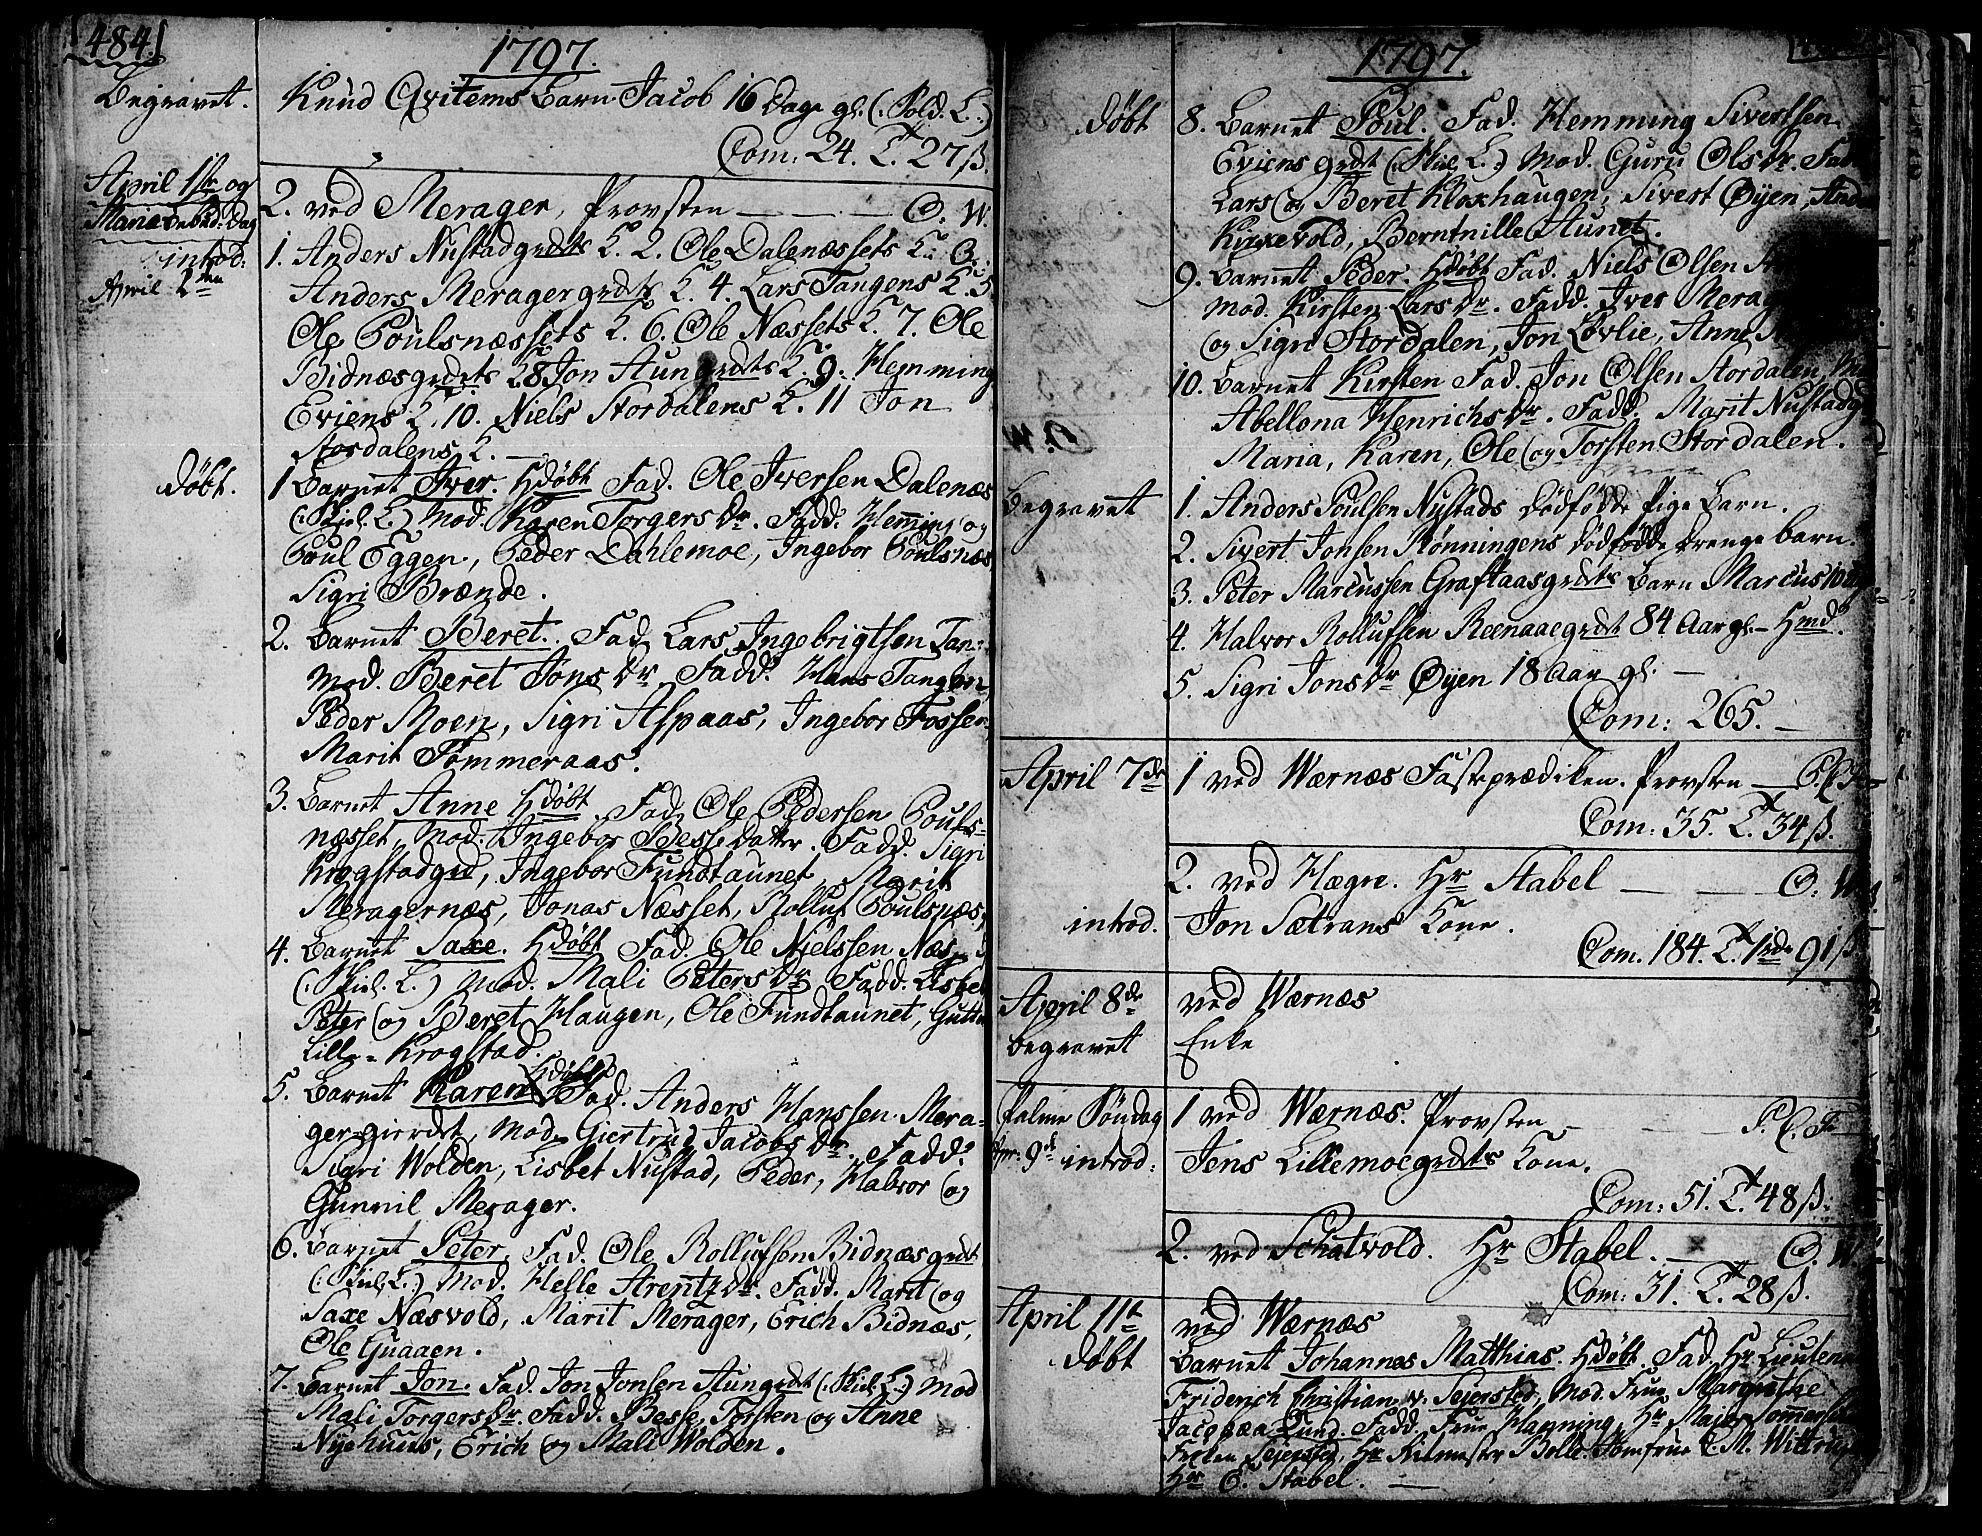 484
1797.
Begravet. Knud Qvitems Barn Jacob 16 Dage gl. (: Sold. L. :)
Com: 24. T. 27 ß.
April 1ste og
Mariæ Bebud: Dag
2. ved Merager, Provsten — — O. W.
introd:
April 2den
1. Anders Nustadgrdts K. 2. Ole Dalenæssets K. 3.
Anders Meragergrdts K. 4. Lars Tangens K. 5
Ole Poulsnæssets K. 6. Ole Næssets K. 7. Ole
Bidnæsgrdets K 8 Jon Aungrdts K. 9. Hemming
Eviens K. 10. Niels Stordalens K. 11 Jon
Stordalens K. —
Døbt. 1 Barnet Iver. Hdøbt Fad. Ole Iversen Dalenæs
(: Skiel. L.) Mod. Karen Torgersdr. Fadd. Hemming og
Poul Eggen, Peder Dahlemoe, Ingebor Poulsnæs
Sigri Brænde.
2. Barnet Beret. Fad. Lars Ingebrigtsen Tan-
Mod. Beret Jonsdr. Fadd. Hans Tangen,
Peder Moen, Sigri Aspaas, Ingebor Fossen,
Marit Tømmeraas.
3. Barnet Anne Hdøbt. Fad. Ole Pedersen Pouls-
næsset, Mod. Ingebor Bessedatter. Fadd. Sigri
Krogstadgrd, Ingebor Fundtaunet, Marit
Meragernæs, Jonas Næsset, Rolluf Poulsnæs,
4. Barnet Saxe. Hdøbt Fad. Ole Nielssen Næs-
(: Skiel. L.) Mod. Mali Petersdr. Fadd. Lisbet
Peter og Beret Haugen, Ole Fundtaunet,
Lille-Krogstad.
5. Barnet Karen Hdøbt Fad. Anders Hanssen Mera-
ger-gierdet, Mod. Giertrud Jacobsdr. Fadd.
Sigri Wolden, Lisbet Nustad, Peder, Halvor og
Gunnil Merager.
6. Barnet Peter, Fad. Ole Rollufsen Bidnæsgrdt
(: Skiel. L.) Mod. Helle Arentzdr. Fadd. Marit og
Saxe Næsvold, Marit Merager, Erich Bidnæs,
Ole Guaaen.
7. Barnet Jon. Fad. Jon Jonsen Aungrdt (: Skiel. L.) Mod
Mali Torgersdr. Fadd. Besse, Torsten og Anne
Nyehuus, Erich og Mali Wolden.
1797.
Døbt 8. Barnet Poul. Fad. Hemming Sivertsen
Eviensgrdt (: Skiel. L.) Mod. Guru Olsdr. Fadd.
Lars og Beret Kloxhaugen, Sivert Øyen,
Kirkevold, Berntnille Aunet.
9. Barnet Peder. Hdøbt Fad. Niels Olsen
Mod. Kirsten Larsdr. Fadd. Iver
og Sigri Stordalen, Jon Løvlie, Anne
10. Barnet Kirsten Fad. Jon Olsen Stordalen,
Abellona Henrichsdr. Fadd. Marit
Maria, Karen, Ole og Torsten Stordalen.
Begravet 1. Anders Poulsen Nustads dødfødde Pige Barn.
2. Sivert Jonsen Rønningens dødfødde drenge barn.
3. Peter Marcussen Graftaasgrdts Barn Marcus 10
4. Halvor Rollufsen Reenaaegrdt 84 Aar gl. — Hmd.
5. Sigri Jonsdr Øyen 18 Aar gl. —
Com: 265. —
April 7de 1 ved Wærnæs Fasteprædiken. Provsten —
Com: 35. T. 34 ß.
2. ved Hægre. Hr Stabel — — O. W.
introd. Jon Sætrans Kone.
Com. 184. T. 1rdr 91 ß
April 8de ved Wærnæs
begravet Enke
Palme Søndag 1 ved Wærnæs. Provsten —
Apr: 9de introd: Jens Lillemoegrdts Kone.
Com: 51. T. 48 ß.
2. ved Schatvold. Hr Stabel. — O. W.
Com: 31. T. 28 ß.
April 11te ved Wærnæs
døbt Barnet Johannes Matthias. Hdøbt. Fad. Hr Lieuten
Friderich Christian v. Sejersted, Mod. Frue Margrethe
Jacobæa Lund. Fadd. Frue Hanning, Hr Major
Frøken Sejersted, Hr Ritmester Bolle, Jomfrue C. M. Wittrup
Hr E. Stabel. —